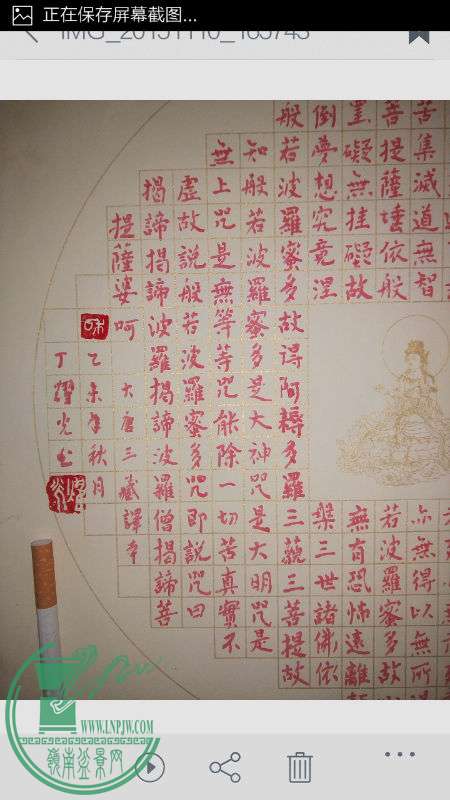 正在保存屏幕截图...
苦集滅道無智
亦無得以無所得
菩提薩埵依般
若波羅蜜多故
罣礙無挂礙故
無有恐怖遠離
倒夢想究竟涅
槃三世諸佛依
般若波羅蜜多故得阿耨多羅三藐三菩提故
知般若波羅蜜多是大神咒是大明咒是
無上咒是無等等咒能除一切苦真實不
虛故説般若波羅蜜多咒即説咒曰
揭諦揭諦波羅揭諦波羅僧揭諦菩
提薩婆呵 大唐三藏譯本
乙未年秋月
丁耀光书
WWW.LNPJW.COM
嶺南盆景网